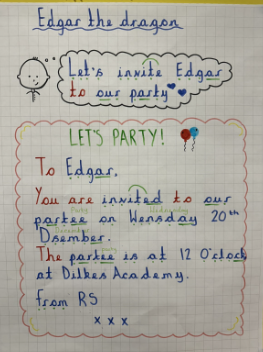 Edgar the dragon
Let's invite Edgar
to our party
LET'S PARTY!
To Edgar,
You are invited to our
Party Wednesday
partee on Wensday 20th
December
Dsember.
party
The partee is at 12 O'clock
at Dilkes Academy.
from RS
x x x